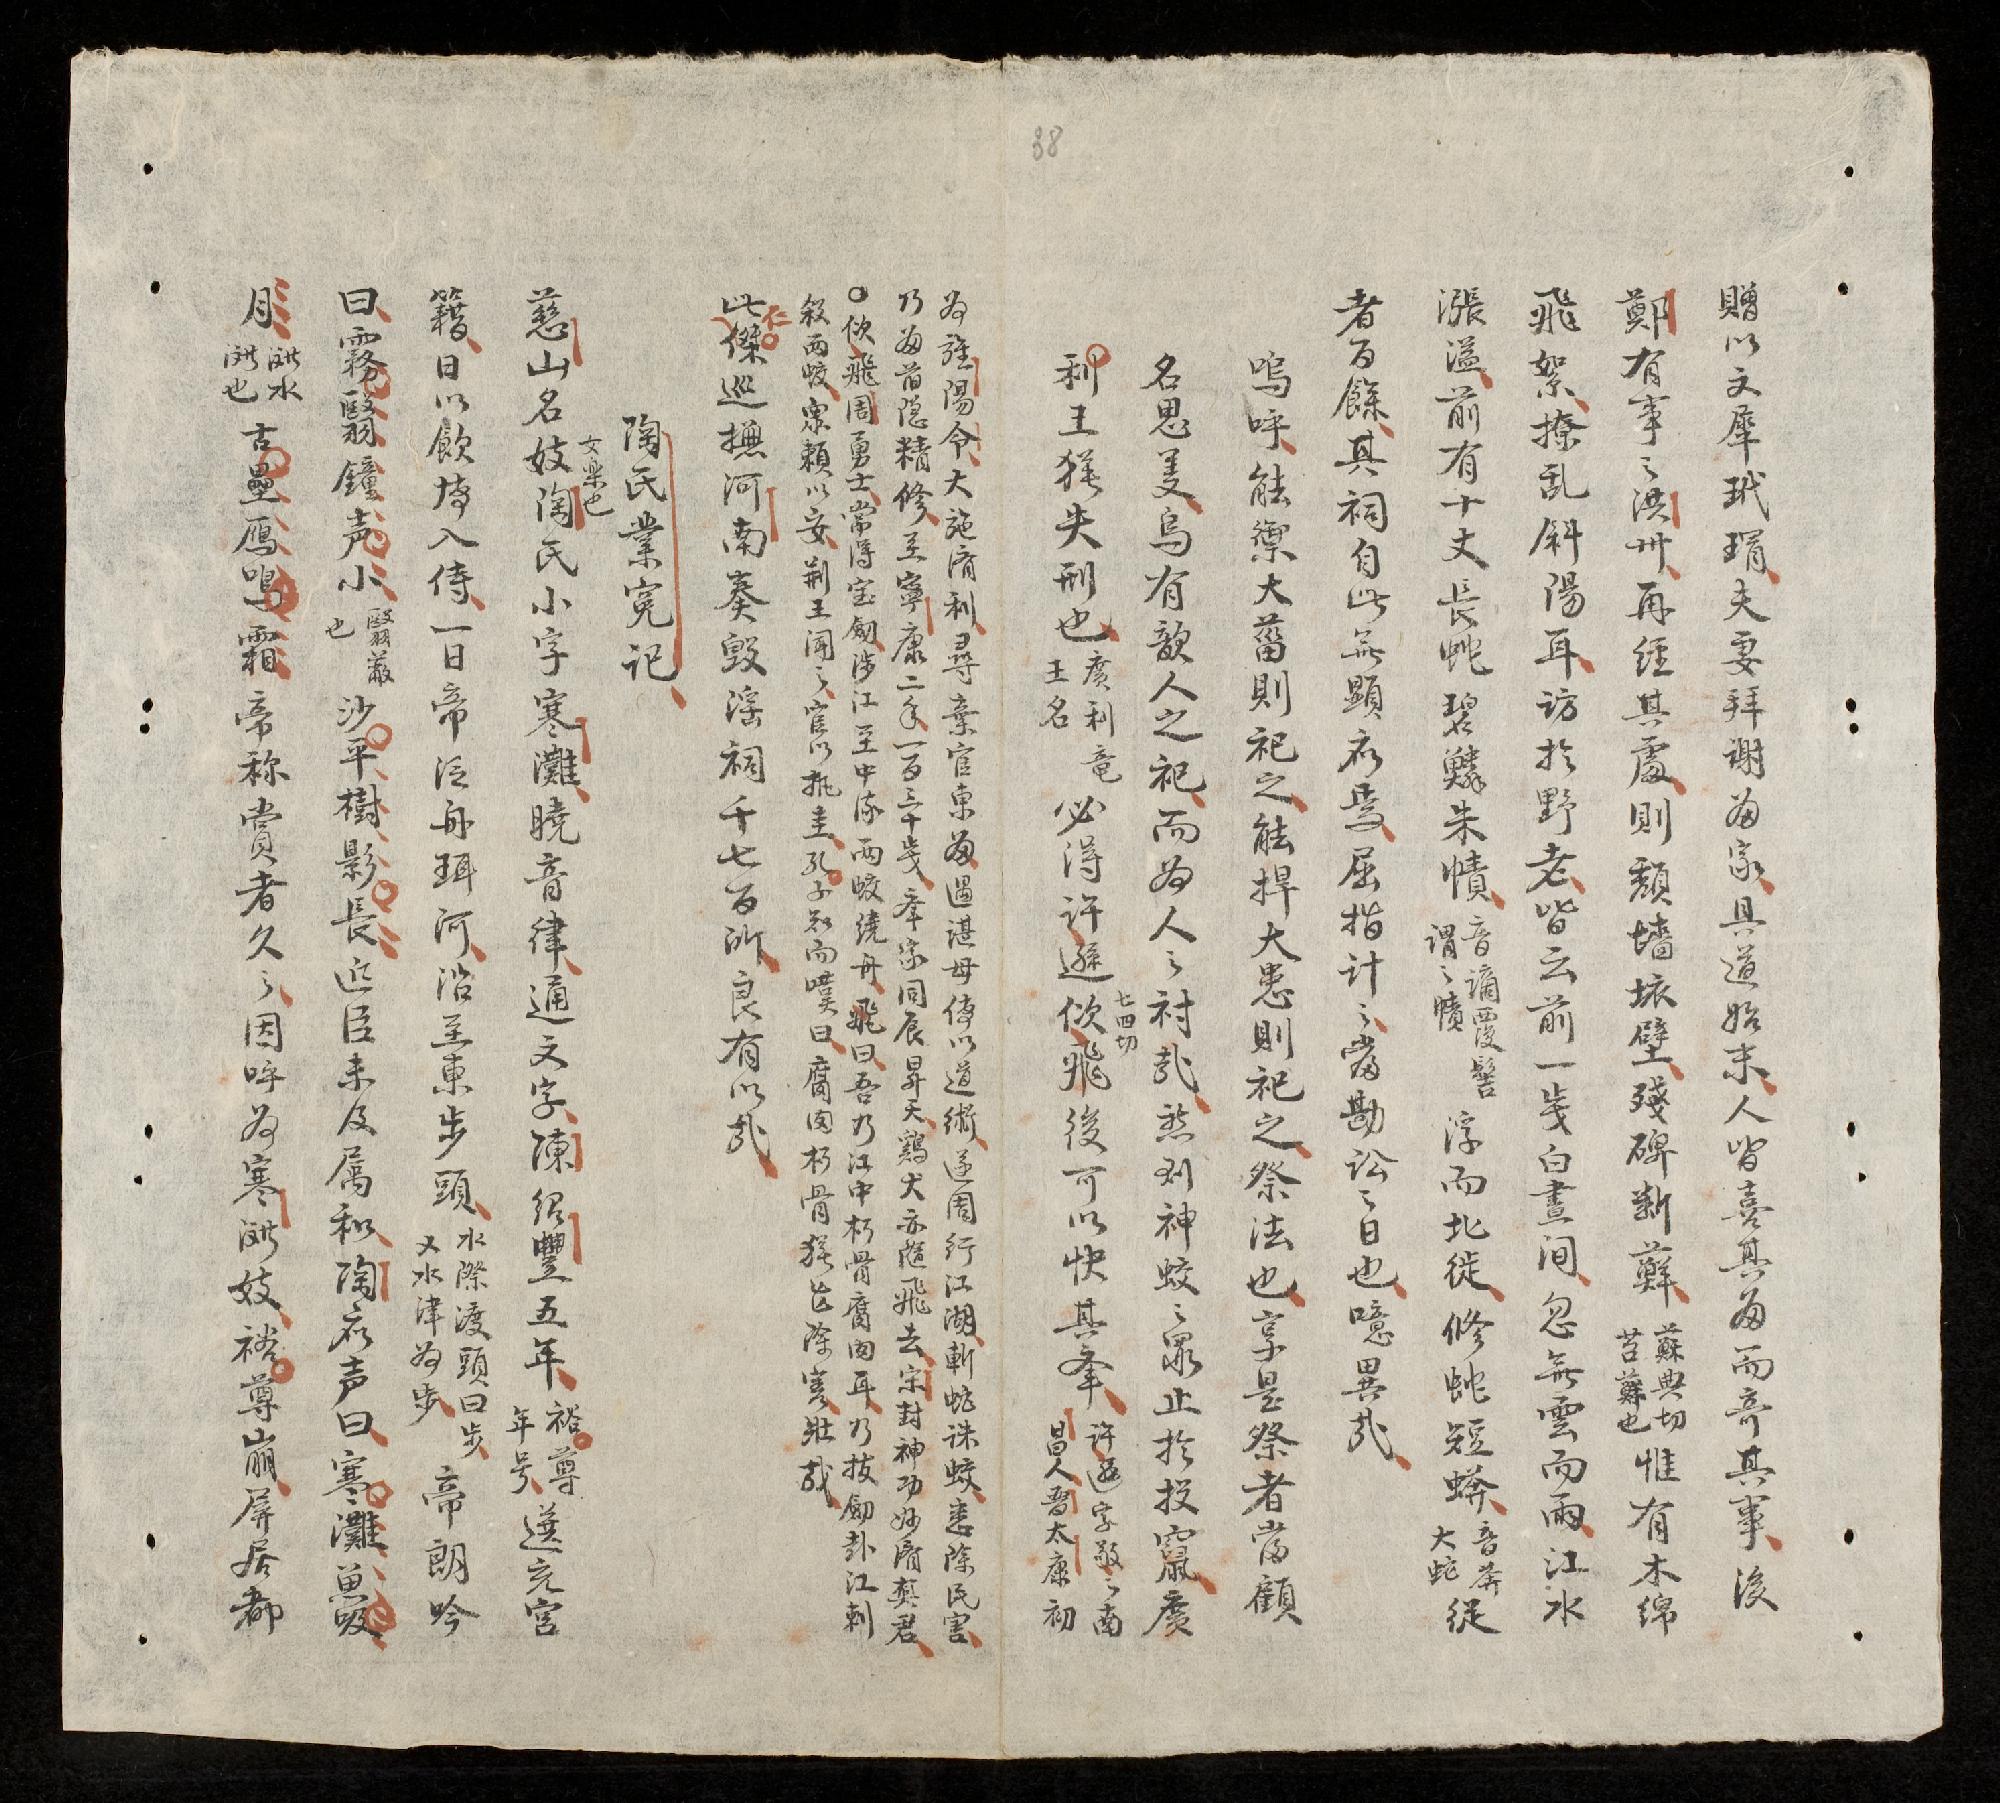 38
贈以文犀玳瑁夫妻拜謝而家具道始末人皆喜其而奇其事後
鄭有事之洪州再経其處則頽墻壊壁殘碑断蘚蘚典切苔蘚也惟有木綿
飛絮撩乱斜陽耳訪於野老皆云前一歲白晝间忽無雲而雨江水
漲溢前有十丈長蛇碧鱗朱幘音謫覆髻謂之幘浮而北徙修蛇短蟒音莽大蛇従
者百餘其祠自此無顕応焉屈指計之當勘訟之日也噫異哉
嗚呼能禦大菑則祀之能捍大患則祀之祭法也享是祭者當顧
名思義烏有歆人之祀而為人之討哉然則神蛟之罪止於投竄廣
利王猶失刑也廣利竜王名必得許遜佽七四切飛後可以快其奉許遜字敬之南昌人晋太康初
為旌陽令大施済利尋棄官東遇諶母傳以道術遂周行江湖斬蛇誅蛟悉除民害
乃為首隠精修至寧康二年一百三十歲奉家同辰昇天鶏犬亦随飛去宋封神功妙済真君
○佽飛周勇士常得宝劔渉江至中流両蛟繞舟飛曰吾乃江中朽骨腐肉耳乃抜劔赴江刺
殺両蛟衆頼以安荆王聞之官以执圭孔子知而嘆曰腐肉朽骨猶能除害壮哉
此仁傑巡撫河南奏毀滛祠千七百所良有以哉
陶氏業寃記
慈山名妓女楽也陶氏小字寒灘曉音律通文字陳紹豐五年裕尊年号選充宮
籍日以飲博入侍一日帝泛舟珥河沿至東步頭水際渡頭曰步又水津為步帝朗吟
曰霧翳鐘声小翳蔽也沙平樹影長近臣未及属和陶应声曰寒灘魚吸
月灘水灘也古壘鴈鳴霜帝称賞者久之因呼為寒灘妓裕尊崩屏居都